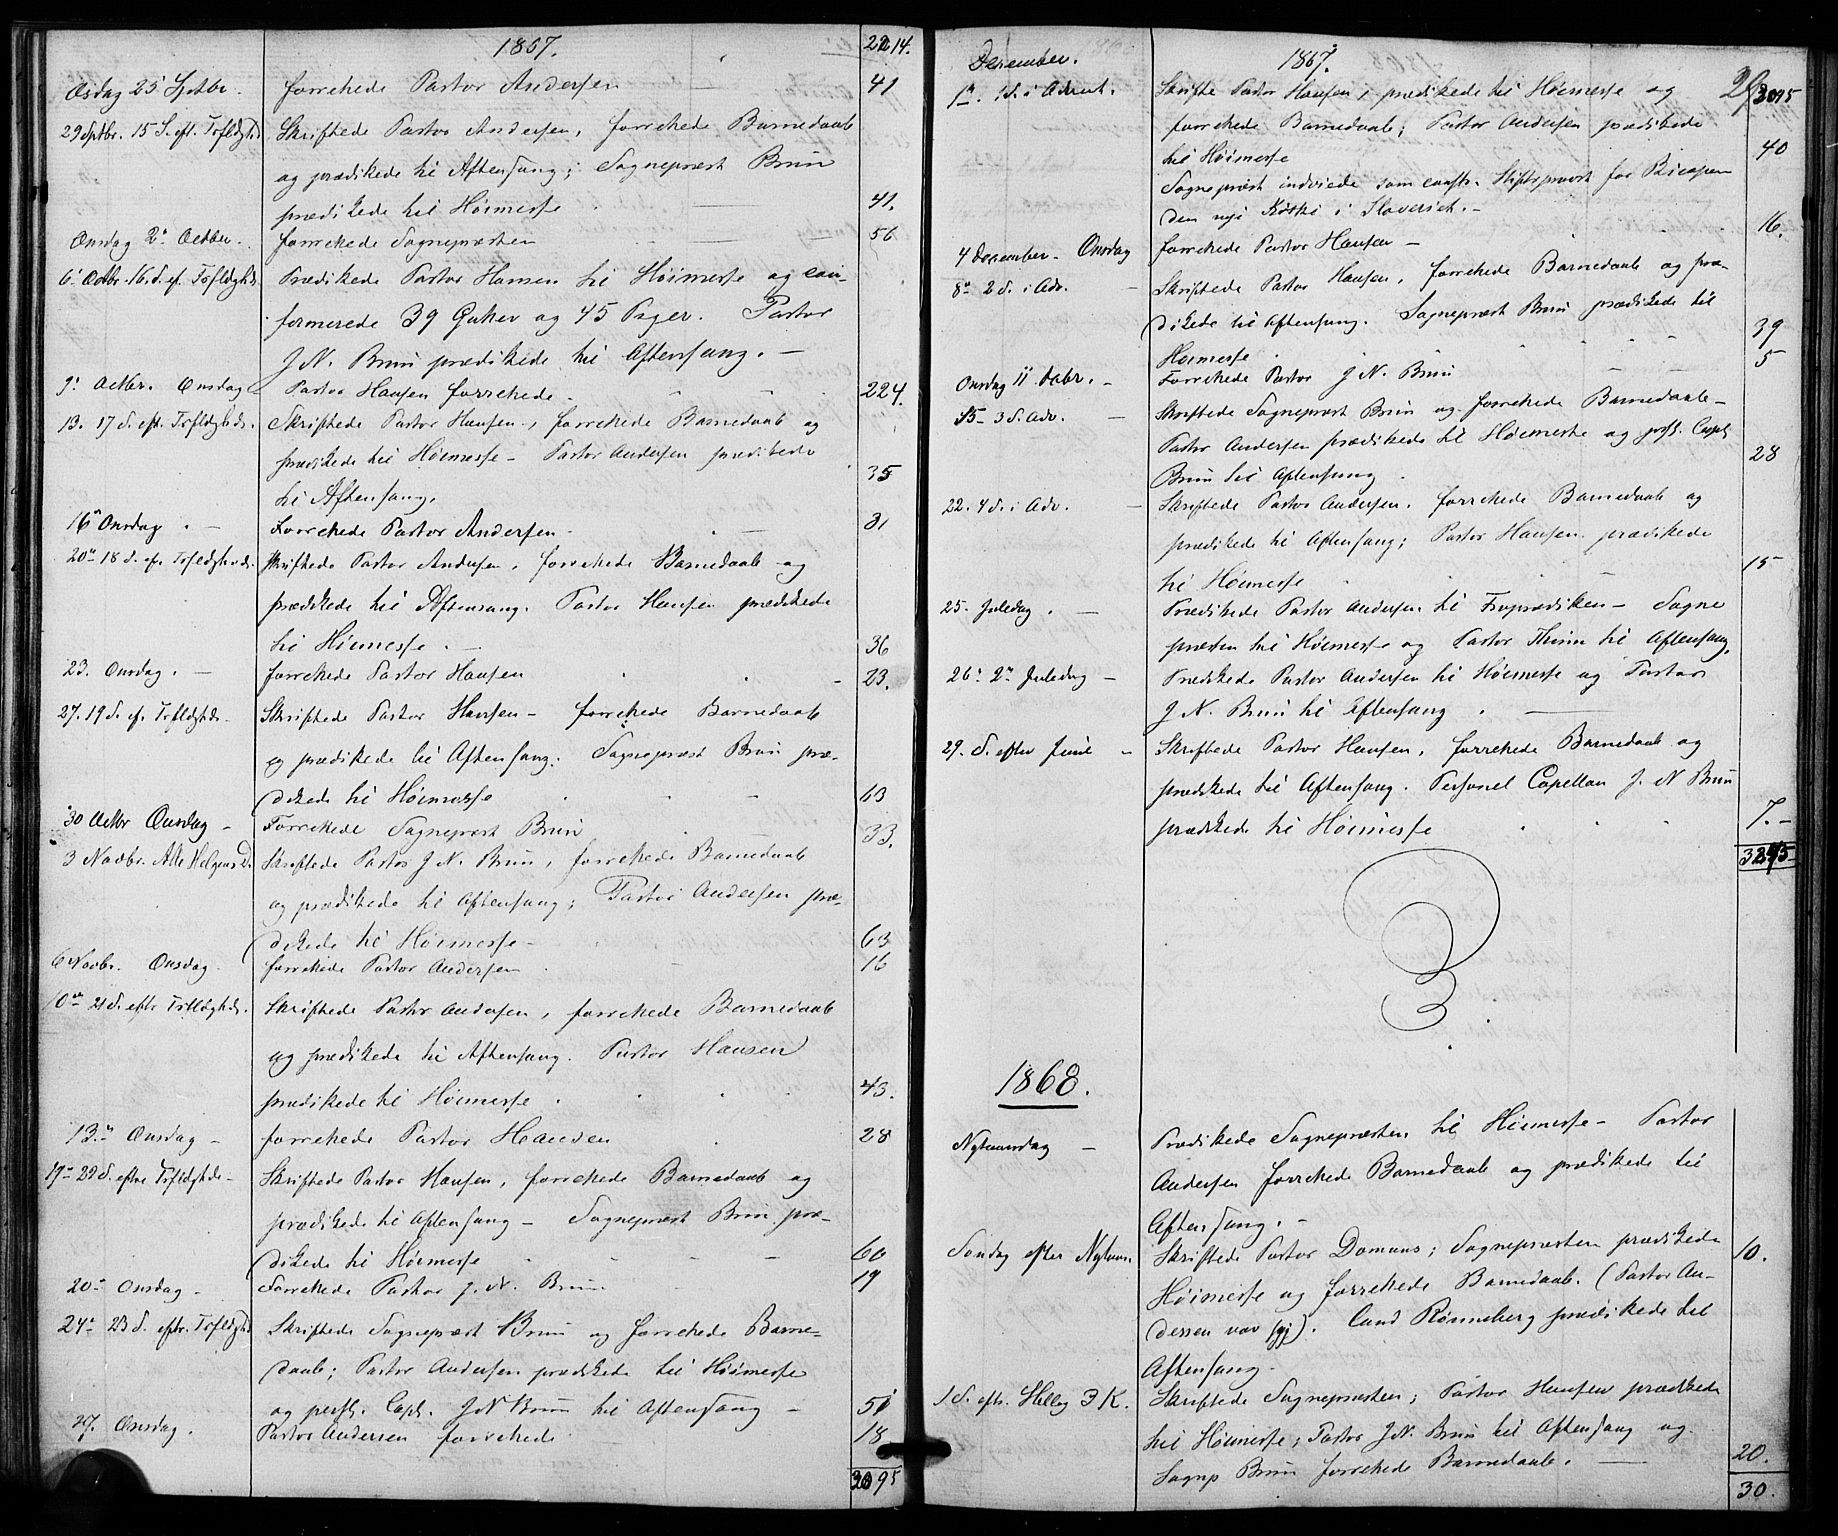 1867.
2214.
Onsdag 25 Septbr. forrettede Pastor Andersen 41
29 Septbr. 15 S. eft. Trefldghd. Skriftede Pastor Andersen, forrettede Barnedaab
og prædikede til Aftensang; Sognepræst Brun
prædikede til Høimesse 41.
Onsdag 2n Octber. forrettede Sognepræsten 56
6n Octbr. 16. S. ef. Trefldghds. Prædikede Pastor Hansen til Høimesse og con-
firmerede 39 Gutter og 45 Piger. Pastor
J. N. Brun prædikede til Aftensang. —
9n Octbr. Onsdag Pastor Hansen forrettede 224.
13. 17 S. eft. Trefldghds. Skriftede Pastor Hansen, forrettede Barnedaab og
prædikede til Høimesse — Pastor Andersen prædikede
til Aftensang. 35
16n Onsdag . — Forrettede Pastor Andersen 31
20n 18 S. ef. Trefldghds. Skriftede Pastor Andersen, forrettede Barnedaab og
prædikede til Aftensang. Pastor Hansen prædikede
til Høimesse . — 36
23. Onsdag . — forrettede Pastor Hansen 23.
27. 19 S. ef. Trefldghds. Skriftede Pastor Hansen — forrettede Barnedaab
og prædikede til Aftensang. Sognepræst Brun præ-
dikede til Høimesse 63
30 Octbr Onsdag — Forrettede Sognepræst Brun 33.
3 Novbr. Alle Helgens D. Skriftede Pastor J. N. Brun, forrettede Barnedaab
og prædikede til Aftensang; Pastor Andersen præ-
dikede til Høimesse — 63
6 Novbr. Onsdag forrettede Pastor Andersen 16
10de 21 S. efter Trefldghds. Skriftede Pastor Andersen, forrettede Barnedaab
og prædikede til Aftensang. Pastor Hansen
prædikede til Høimesse . 43.
13.n Onsdag — forrettede Pastor Hansen 28
17n 22 S. efter Trefldghds — Skriftede Pastor Hansen, forrettede Barnedaab og
prædikede til Aftensang — Sognepræst Brun præ-
dikede til Høimesse 60
20n Onsdag — Forrettede Pastor J. N. Brun 19
24n 23 S. eftr. Trefldghd Skriftede Sognepræst Brun og forrettede Barne-
daab; Pastor Andersen prædikede til Høimesse
og persl. Capl. J N Brun til Aftensang — 51
27. Onsdag . Pastor Andersen forrettede 18
3095
December. 1867.
3095
1n. 1 S. i Advent. Skrifte Pastor Hansen, prædikede til Høimesse og
forrettede Barnedaab; Pastor Andersen prædikede
til Høimesse 40
Sognepræst indviede som constr. Stiftsprovst for Bicspen
den nye Kirke i Slaveriet. — 16.
4 December — Onsdag forrettede Pastor Hansen —
8n 2 S. i Adv. — Skriftede Pastor Hansen, forrettede Barnedaab og præ-
dikede til Aftensang. Sognepræst Brun prædikede til
Høimesse 39
Onsdag 11 Debr. — Forrettede Pastor J N. Brun 5
15 — 3 S. Adv. — Skriftede Sognepræst Brun og forrettede Barnedaab —
Pastor Andersen prædikede til Høimesse og persl. Capl.
Brun til Aftensang 28
22. 4 S. i Adv. — Skriftede Pastor Andersen, forrettede Barnedaab og
prædikede til Aftensang; Pastor Hansen prædikede
til Høimesse 15
25. Juledag . — Prædikede Pastor Andersen til Froprædiken — Sogne
præsten til Høimesse og Pastor Thunn til Aftensang.
26n 2n Juledag — Prædikede Pastor Andersen til Høimesse og Pastor
J. N. Brun til Aftensang . —
29. S. efter Juul — Skriftede Pastor Hansen, forrettede Barnedaab og
prædikede til Aftensang. Personel Capellan J. N Brun
prædikede til Høimesse 7. —
3245
1868.
Nytaarsdag — Prædikede Sognepræsten til Høimesse — Pastor
Andersen forrettede Barnedaab og prædikede til
Aftensang. —
Søndag efter Nytaar. Skriftede Pastor Domaas; Sognepræsten prædikede 10.
Høimesse og forrettede Barnedaab. (Pastor An-
dersen var syg). Cand Rønneberg prædikede til
Aftensang.
1 S. eftr. Hellig 3 K. Skriftede Sognepræsten; Pastor Hansen prædikede
til Høimesse; Pastor J N. Brun til Aftensang og
Sognp Brun forrettede Barnedaab. — 20.
30.